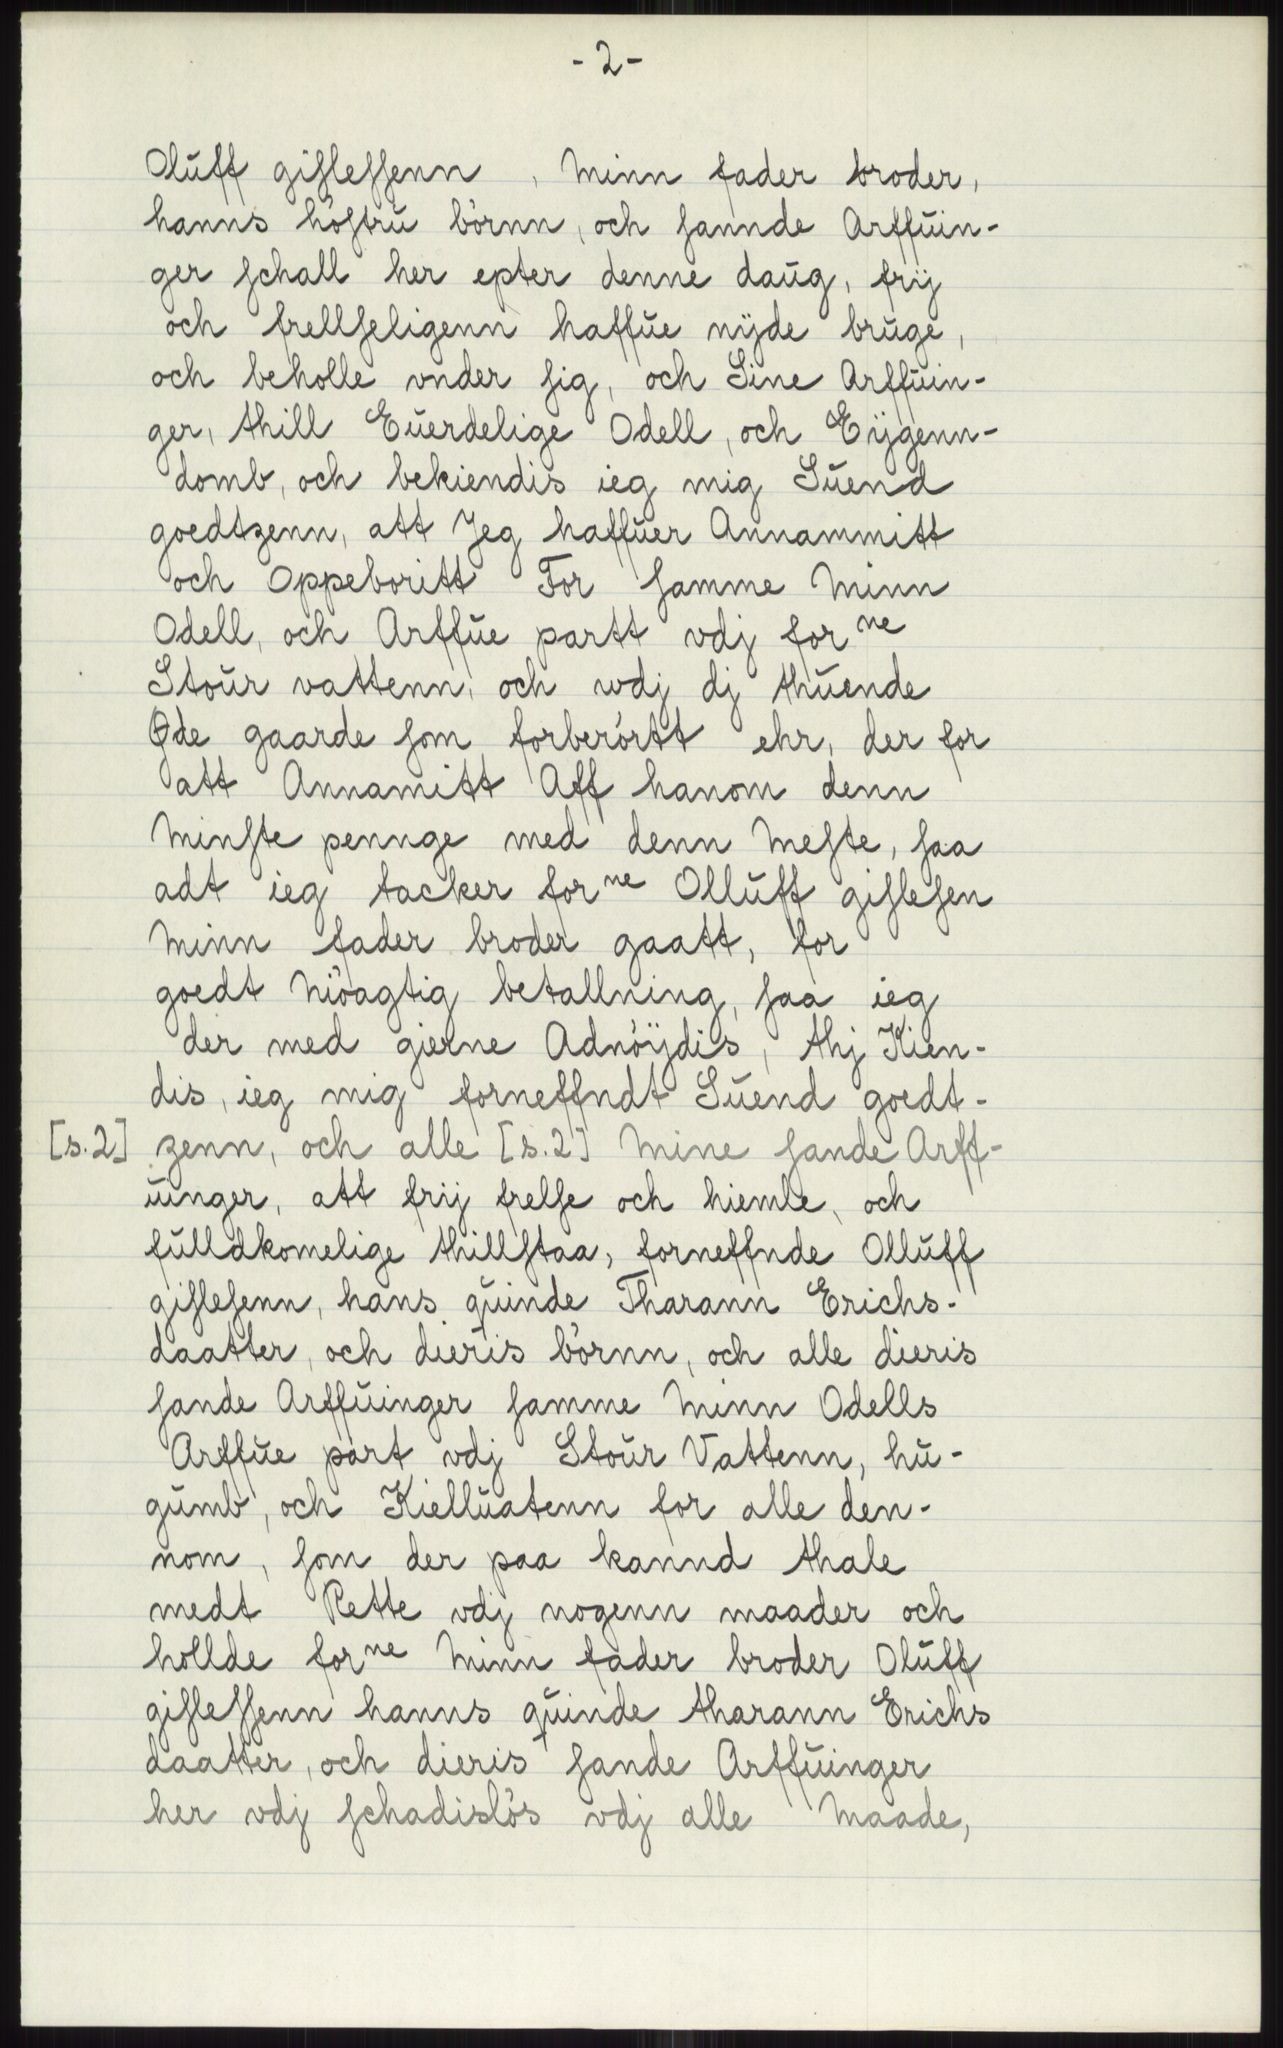 - 2 -
Oluff giſleſſenn, Minn fader broder,
hanns höſtrú börnn, och ſannde Arffúin-
ger ſchall her epter denne daúg, frij
och frellſeligenn haffúe nÿde brúge,
och beholle vnder ſig, och Sine Arffúin-
ger, thill Eúerdelige Odell, och Eÿgenn-
domb, och bekiendis ieg mig Súend
goedtzenn, att Jeg haffúer Annammitt
och Oppeboritt For ſamme Minn
Odell, och Arffúe partt vdj for ne
Stoúr vattenn, och wdj dj thúende
Øde gaarde ſom forberörtt ehr, der for
att Annamitt Aff hanom denn
Minſte pennge med denn Meſte, ſaa
adt ieg tacker for ne Ollúff giſleſen
Minn fader broder gaatt, for
goedt Nöagtig betallning, ſaa ieg
der med gierne Adnöÿdis, thj Kien-
dis, ieg mig forneffndt Súend goedt-
[s.2] zenn, och alle [s.2] Mine ſande Arff-
úinger, att frij frelſe och hiemle, och
fúlldkomelige thillſtaa, forneffnde Ollúff
giſleſenn, hans qúinde Tharann Erichs-
daatter, och dieris börnn, och alle dieris
ſande Arffúinger ſamme Minn Odells
Arffúe part vdj Stoúr Vattenn, hú-
gúmb, och Kiellúatenn for alle den-
nom, ſom der paa kannd thale
medt Rette vdj nogenn maader och
hollde for ne Minn fader broder Olúff
giſleſſenn hanns qúinde tharann Erichs
daatter, och dieris ſande Arffúinger
her vdj ſchadislös vdj alle Maade,